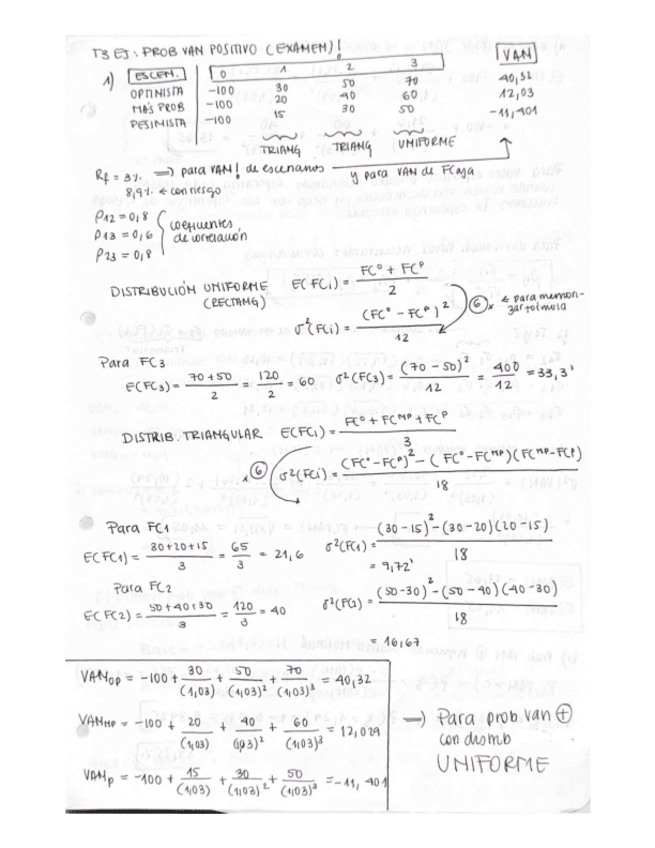 T3 EJ: PROB VAN POSITIVO (EXAMEN)!
1) ESCEN. 0 1 2 3 VAN
OPTIMISTA -100 30 50 70 40,32
MÁS PROB -100 20 40 60 12,03
PESIMISTA -100 15 30 50 -11,401
TRIANG TRIANG UNIFORME
Rf = 3% → para VAN! de escenarios y para VAN de FCaja
8,9% ← con riesgo
ρ12 = 0,8
ρ13 = 0,6 coeficientes
de correlación
ρ23 = 0,8
DISTRIBUCIÓN UNIFORME (RECTANG) E(FCi) = (FC° + FCᴾ) / 2
σ²(FCi) = (FC° - FCᴾ)² / 12 ⑥ × ← para memorizar fórmula
Para FC3
E(FC3) = (70+50)/2 = 120/2 = 60 σ²(FC3) = (70 - 50)²/12 = 400/12 = 33,3'
DISTRIB. TRIANGULAR E(FCi) = (FC° + FCᴹᴾ + FCᴾ)/3
×⑥ σ²(FCi) = ((FC° - FCᴾ)² - (FC° - FCᴹᴾ)(FCᴹᴾ - FCᴾ))/18
Para FC1
E(FC1) = (30+20+15)/3 = 65/3 = 21,6 σ²(FC1) = ((30-15)² - (30-20)(20-15))/18
= 9,72'
Para FC2
E(FC2) = (50+40+30)/3 = 120/3 = 40 σ²(FC2) = ((50-30)² - (50-40)(40-30))/18
= 16,67
VANOP = -100 + 30/(1,03) + 50/(1,03)² + 70/(1,03)³ = 40,32
VANMP = -100 + 20/(1,03) + 40/(1,03)² + 60/(1,03)³ = 12,029
VANP = -100 + 15/(1,03) + 30/(1,03)² + 50/(1,03)³ = -11,401
→ Para prob van ⊕
con distrib
UNIFORME